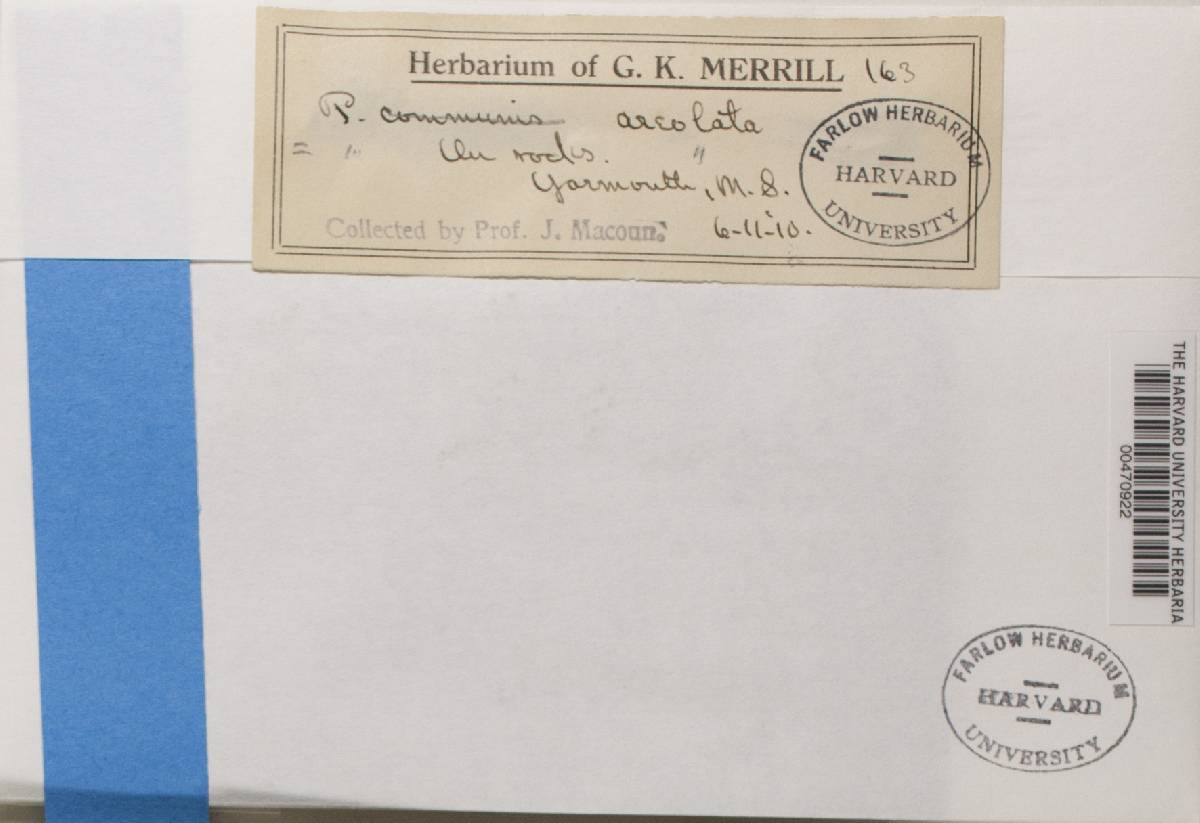 Herbarium of G. K. MERRILL 163
P. communis areolata
= " On rocks. "
Yarmouth, N. S.
Collected by Prof. J. Macoun. 6-11-10.
FARLOW HERBARIUM
HARVARD
UNIVERSITY
THE HARVARD UNIVERSITY HERBARIA
00470922
FARLOW HERBARIUM
HARVARD
UNIVERSITY